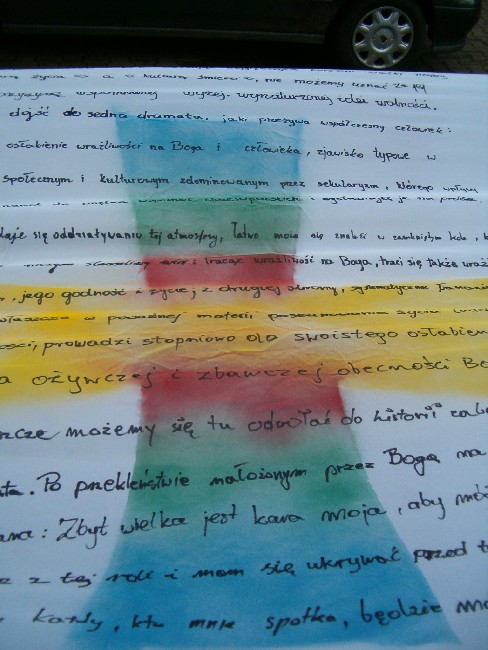 życia nie możemy uznać za
wspomnianej wyżej wynaturzonej idei wolności.
dojść do sedna dramatu, jaki przeżywa współczesny człowiek:
osłabienie wrażliwości na Boga i człowieka, zjawisko typowe w
społecznym i kulturowym zdominowanym przez sekularyzm, którego wpływy
daje się oddziaływaniu tej atmosfery, łatwo może się znaleźć w zamkniętym kole,
tracąc wrażliwość na Boga, traci się także wraż
jego godność i życie; z drugiej strony, systematyczne łamanie
w poważnej materii poszanowania życia
ości, prowadzi stopniowo do swoistego osłabien
a ożywczej i zbawczej obecności Bo
szcze możemy się tu odwołać do historii zab
ta. Po przekleństwie nałożonym przez Boga na
ana: Zbyt wielka jest kara moja, aby móc
z tej roli i mam się ukrywać przed t
każdy, kto mnie spotka, będzie mó